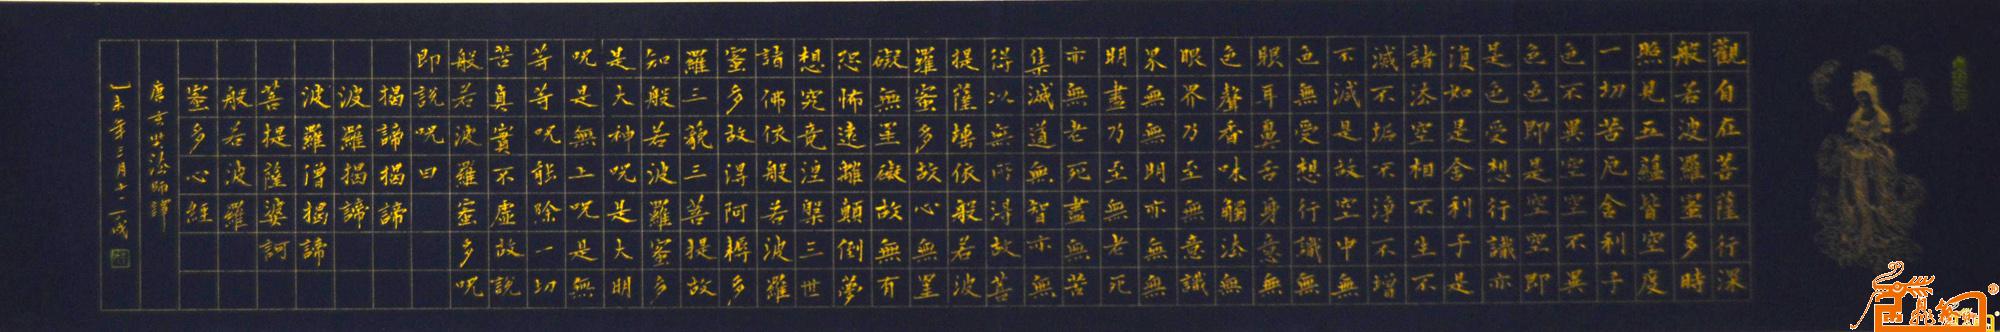 觀自在菩薩行深
般若波羅蜜多時
照見五蘊皆空度
一切苦厄舍利子
色不異空空不異
色色即是空空即
是色受想行識亦
復如是舍利子是
諸法空相不生不
滅不垢不淨不增
不減是故空中無
色無受想行識無
眼耳鼻舌身意無
色聲香味觸法無
眼界乃至無意識
界無無明亦無無
明盡乃至無老死
亦無老死盡無苦
集滅道無智亦無
得以無所得故菩
提薩埵依般若波
羅蜜多故心無罣
礙無罣礙故無有
恐怖遠離顛倒夢
想究竟涅槃三世
諸佛依般若波羅
蜜多故得阿耨多
羅三藐三菩提故
知般若波羅蜜多
是大神呪是大明
呪是無上呪是無
等等呪能除一切
苦真實不虛故說
般若波羅蜜多呪
即說呪曰
揭諦揭諦
波羅揭諦
波羅僧揭諦
菩提薩婆訶
般若波羅
蜜多心經
唐玄奘法師譯
乙未年三月十二成